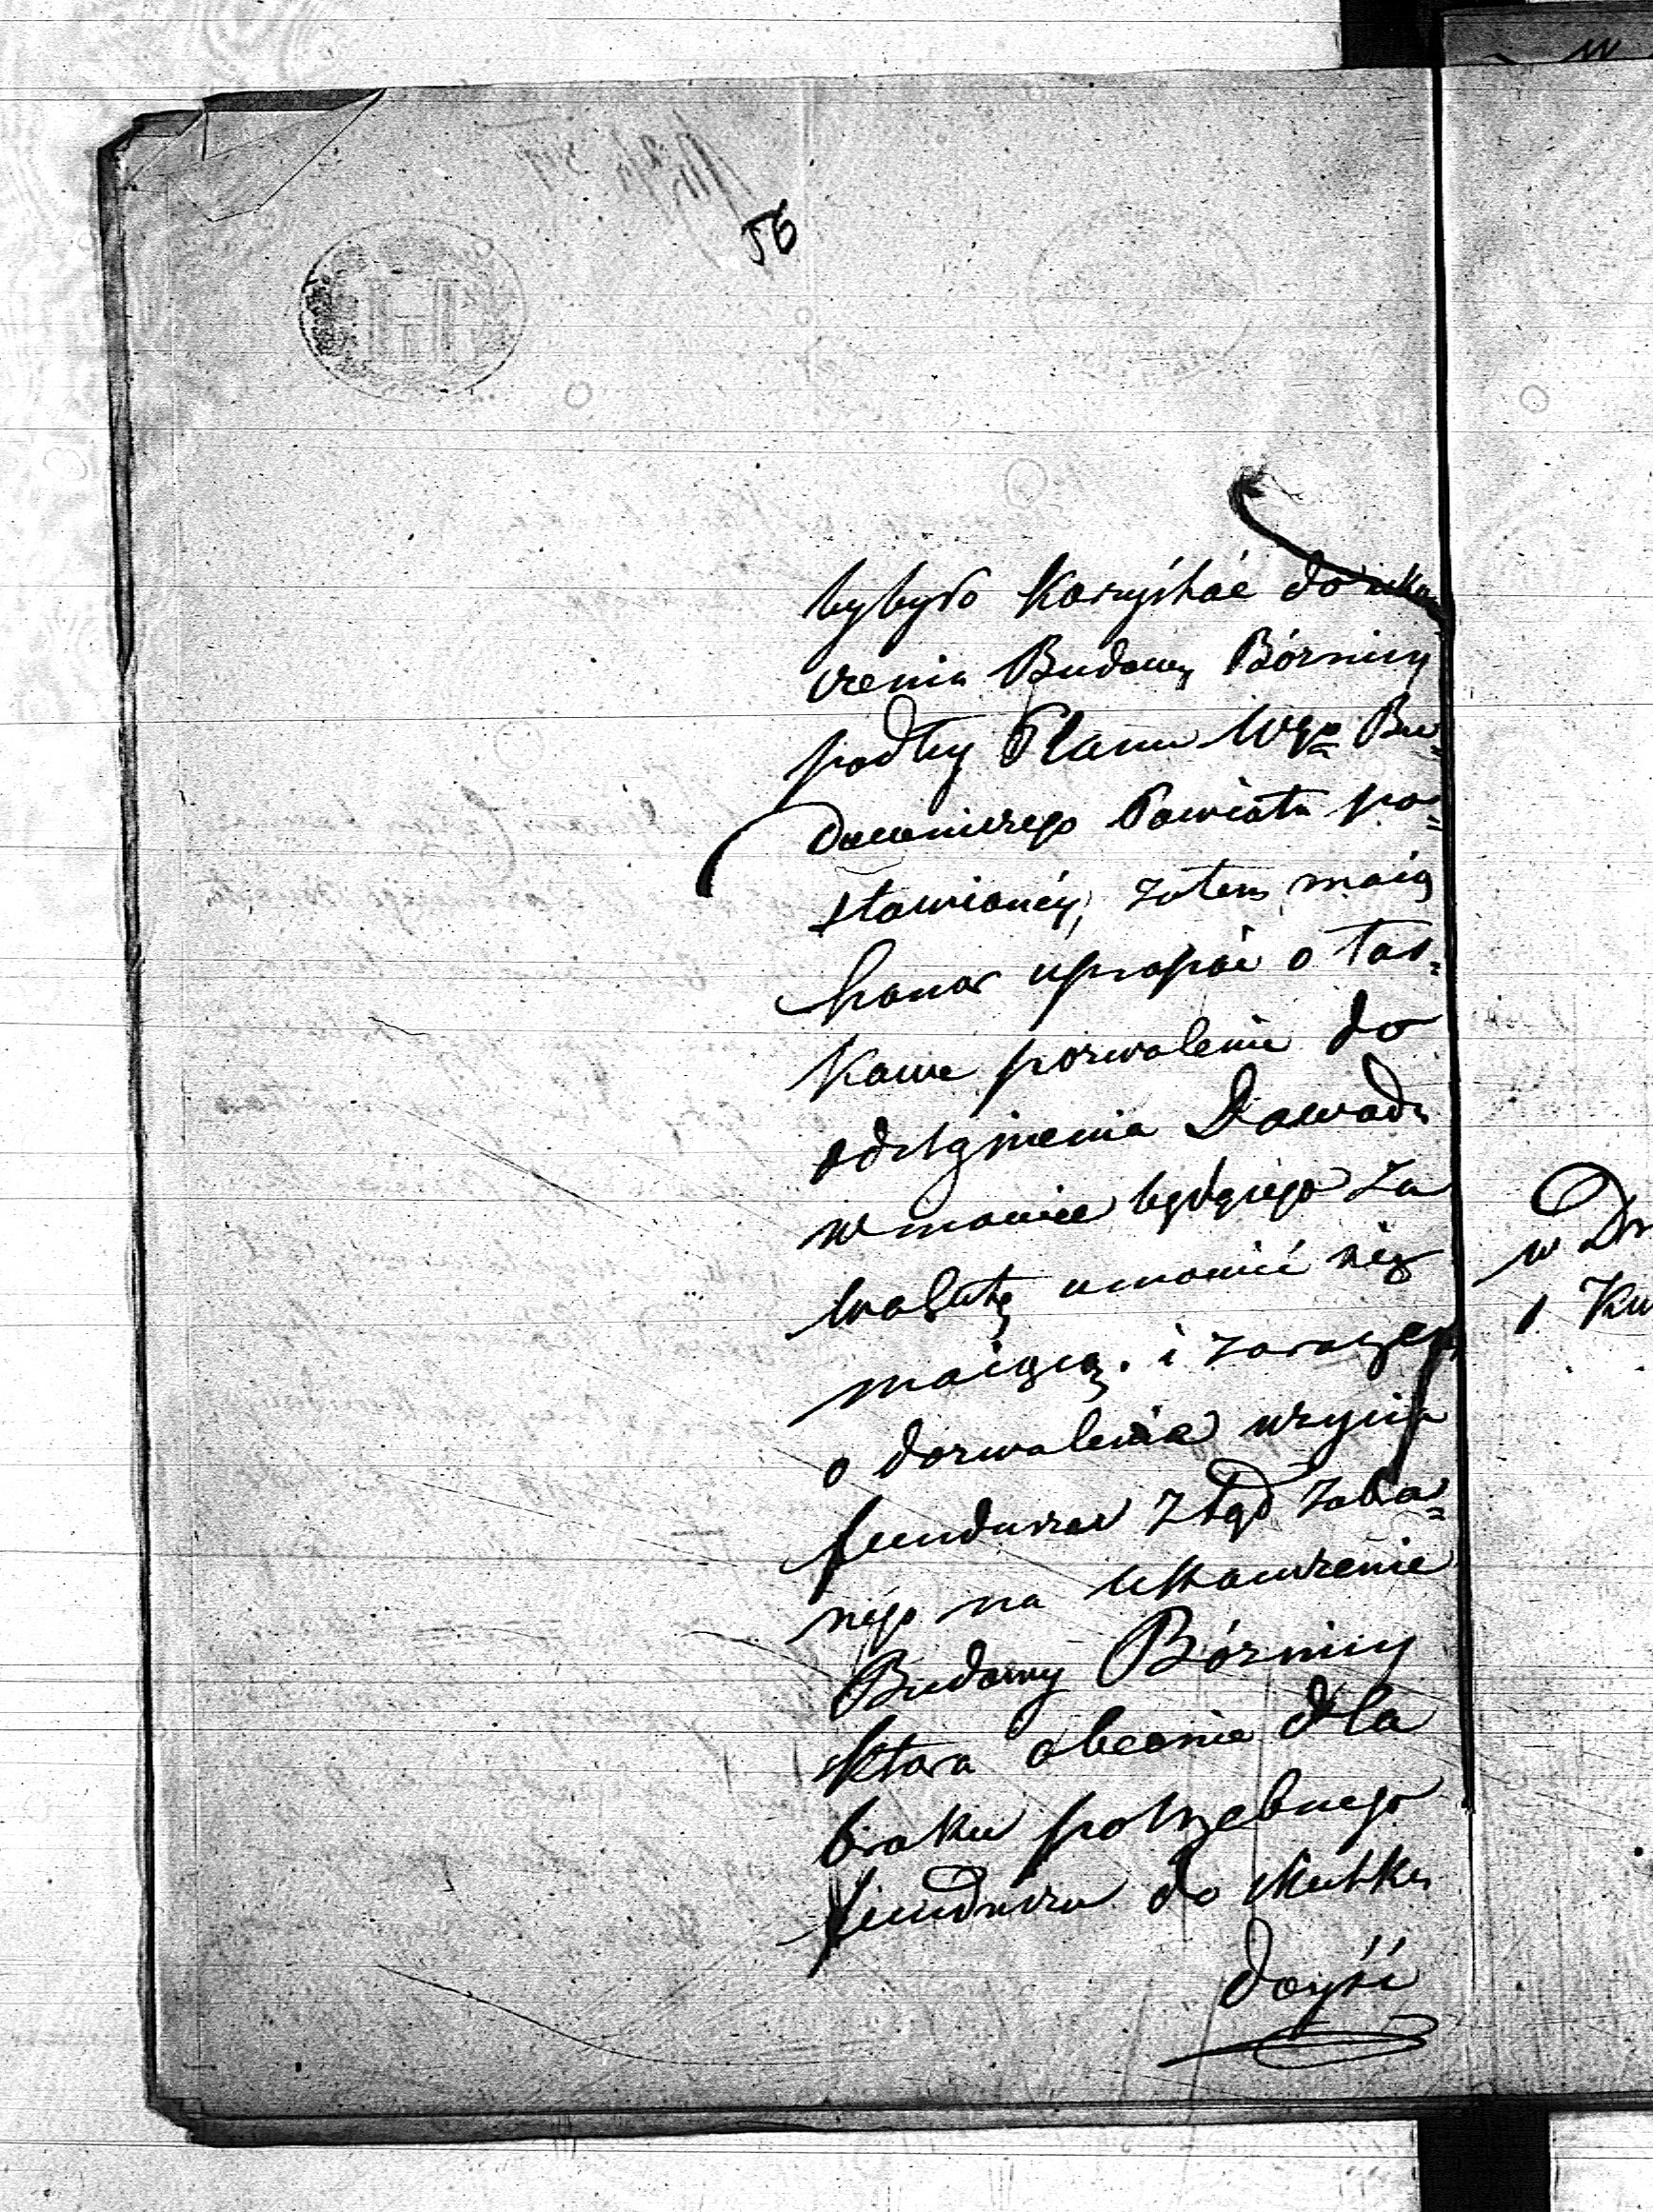 56
bybyło korzystać do ukań
czenia Budowy Bóżnicy
podług Planu Wgo Bu=
downiczego Powiatu po=
stawionéy, zatem maią
honor uprosić o łas=
kawe pozwolenie do
odstąpienia Dowodu
w mowie będącego za
walutę umówić się
maiącą. i zarazem
o dozwolenie użycia
funduszu ztąd zebra=
nego na ukończenie
Budowy Bóżnicy
która obecnie dla
braku potrzebnego
funduszu do skutku
doyść